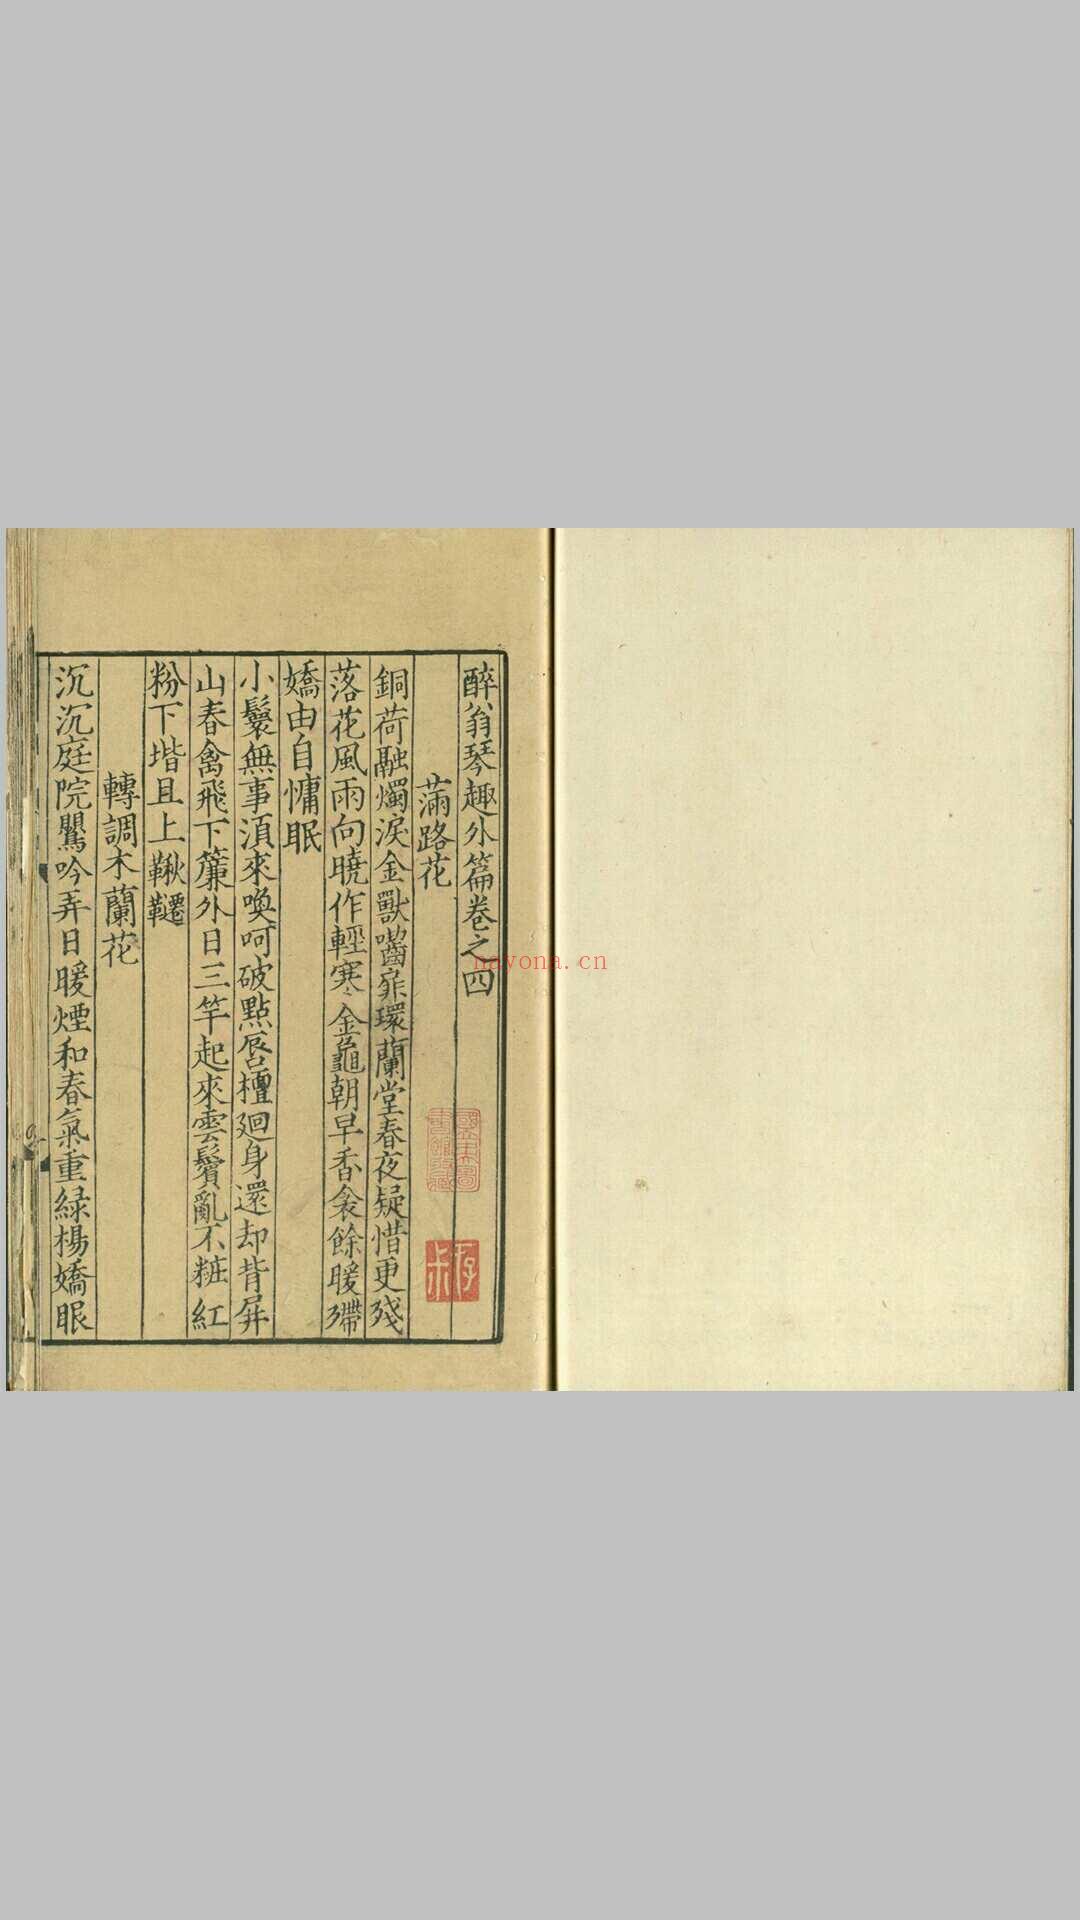 醉翁琴趣外篇卷之四
滿路花
銅荷融燭淚金獸嚙扉環蘭堂春夜疑惜更殘
落花風雨向曉作輕寒金龜朝早香衾餘暖殢
嬌由自慵眠
小鬟無事須來喚呵破點唇檀廻身還却背屏
山春禽飛下簾外日三竿起來雲鬢亂不粧紅
粉下堦且上鞦韆
轉調木蘭花
沉沉庭院鸎吟弄日暖煙和春氣重緑楊嬌眼
nayona.cn